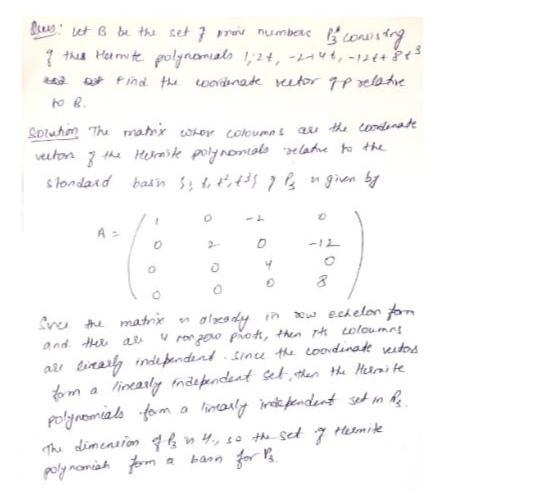 Ques: Let B be the set of prime numbers P3 consisting
of this Hermite polynomials 1, 2t, -2+4t, -12t+8t³
Find the coordinate vector of p relative
to B.
Solution The matrix whose coloumns are the coordinate
vectors of the Hermite polynomials relative to the
standard basis {1, t, t², t³} of P3 is given by
A = ( 1 0 -2 0
0 2 0 -12
0 0 4 0
0 0 0 8 )
Since the matrix is already in row echelon form
and there are 4 nonzero pivots, then its coloumns
are linearly independent. Since the coordinate vectors
form a linearly independent set, then the Hermite
polynomials form a linearly independent set in P3.
The dimension of P3 is 4, so the set of Hermite
polynomials form a basis for P3.